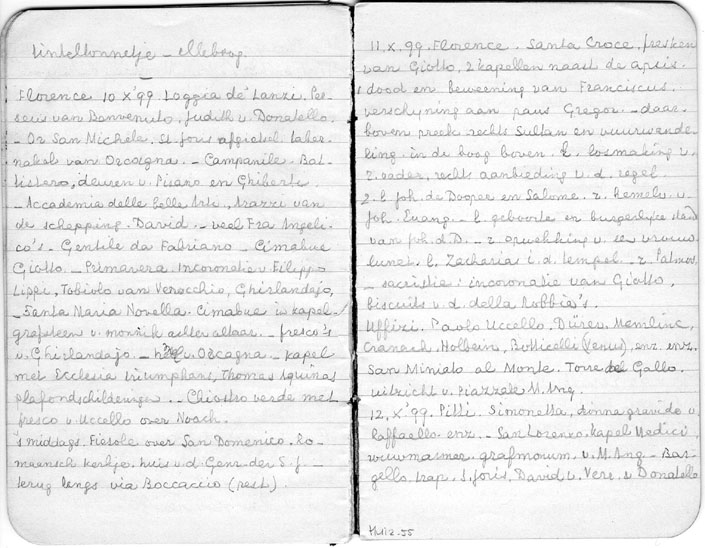 tinteltonnetje – elleboog.
Florence 10 X '99. Loggia de' Lanzi. Per-
seus van Benvenuto, Judith v. Donatello.
– Or San Michele. St. Joris afgietsel. Taber-
nakel van Orcagna. – Campanile. Bat-
tistero, deuren v. Pisano en Ghiberti.
– Accademia delle belle Arte. Arazzi van
de schepping. David. – veel Fra Angeli-
co's – Gentile da Fabriano – Cimabue
Giotto. – Primavera. Incoronatie v. Filippo
Lippi, Tobiolo van Verocchio, Ghirlandajo,
– Santa Maria Novella. Cimabue in kapel.
grafsteen v. monnik achter altaar. – fresco's
v. Ghirlandajo. – hel v. Orcagna – kapel
met Ecclesia triumphans, Thomas Aquinas
plafondschilderingen. – Chiostro verde met
fresco v. Uccello over Noach.
's middags. Fiesole over San Domenico. Ro-
maensch kerkje. huis v. d. Genr. der S. J. –
terug langs via Boccaccio (pest).
11 X. 99. Florence. Santa Croce. fresken
van Giotto, 2 kapellen naast de apsis.
dood en beweening van Franciscus.
verschijning aan paus Gregor. – daar-
boven preek rechts Sultan en vuurwende
king. in de boog boven. l. losmaking v.
z. vader, rechts aanbieding v. d. regel.
2. l. Joh. de Dooper en Salome. r. hemelv. v.
Joh. Evang. – l. geboorte en burgerlijke stand
van Joh. d. D. – r. opwekking v. een vrouw
lunet. l. Zacharias i. d. tempel. r. Patmos.
– sacristie: incoronatie van Giotto.
biscuits v. d. della Robbia's.
Uffizi. Paolo Uccello, Dürer, Memlinc,
Cranach, Holbein, Botticelli (Venus), enz. enz.
San Miniato al Monte. Torre del Gallo.
uitzicht v. Piazzale M. Ang.
12. X '99. Pitti. Simonetta, donna gravida v.
Raffaello. enz. – San Lorenzo. Kapel Medici,
rouwmarmer. grafmonum. v. M. Ang – Bar-
gello. trap. S. Joris, David v. Vere. v Donatello
Huiz-55